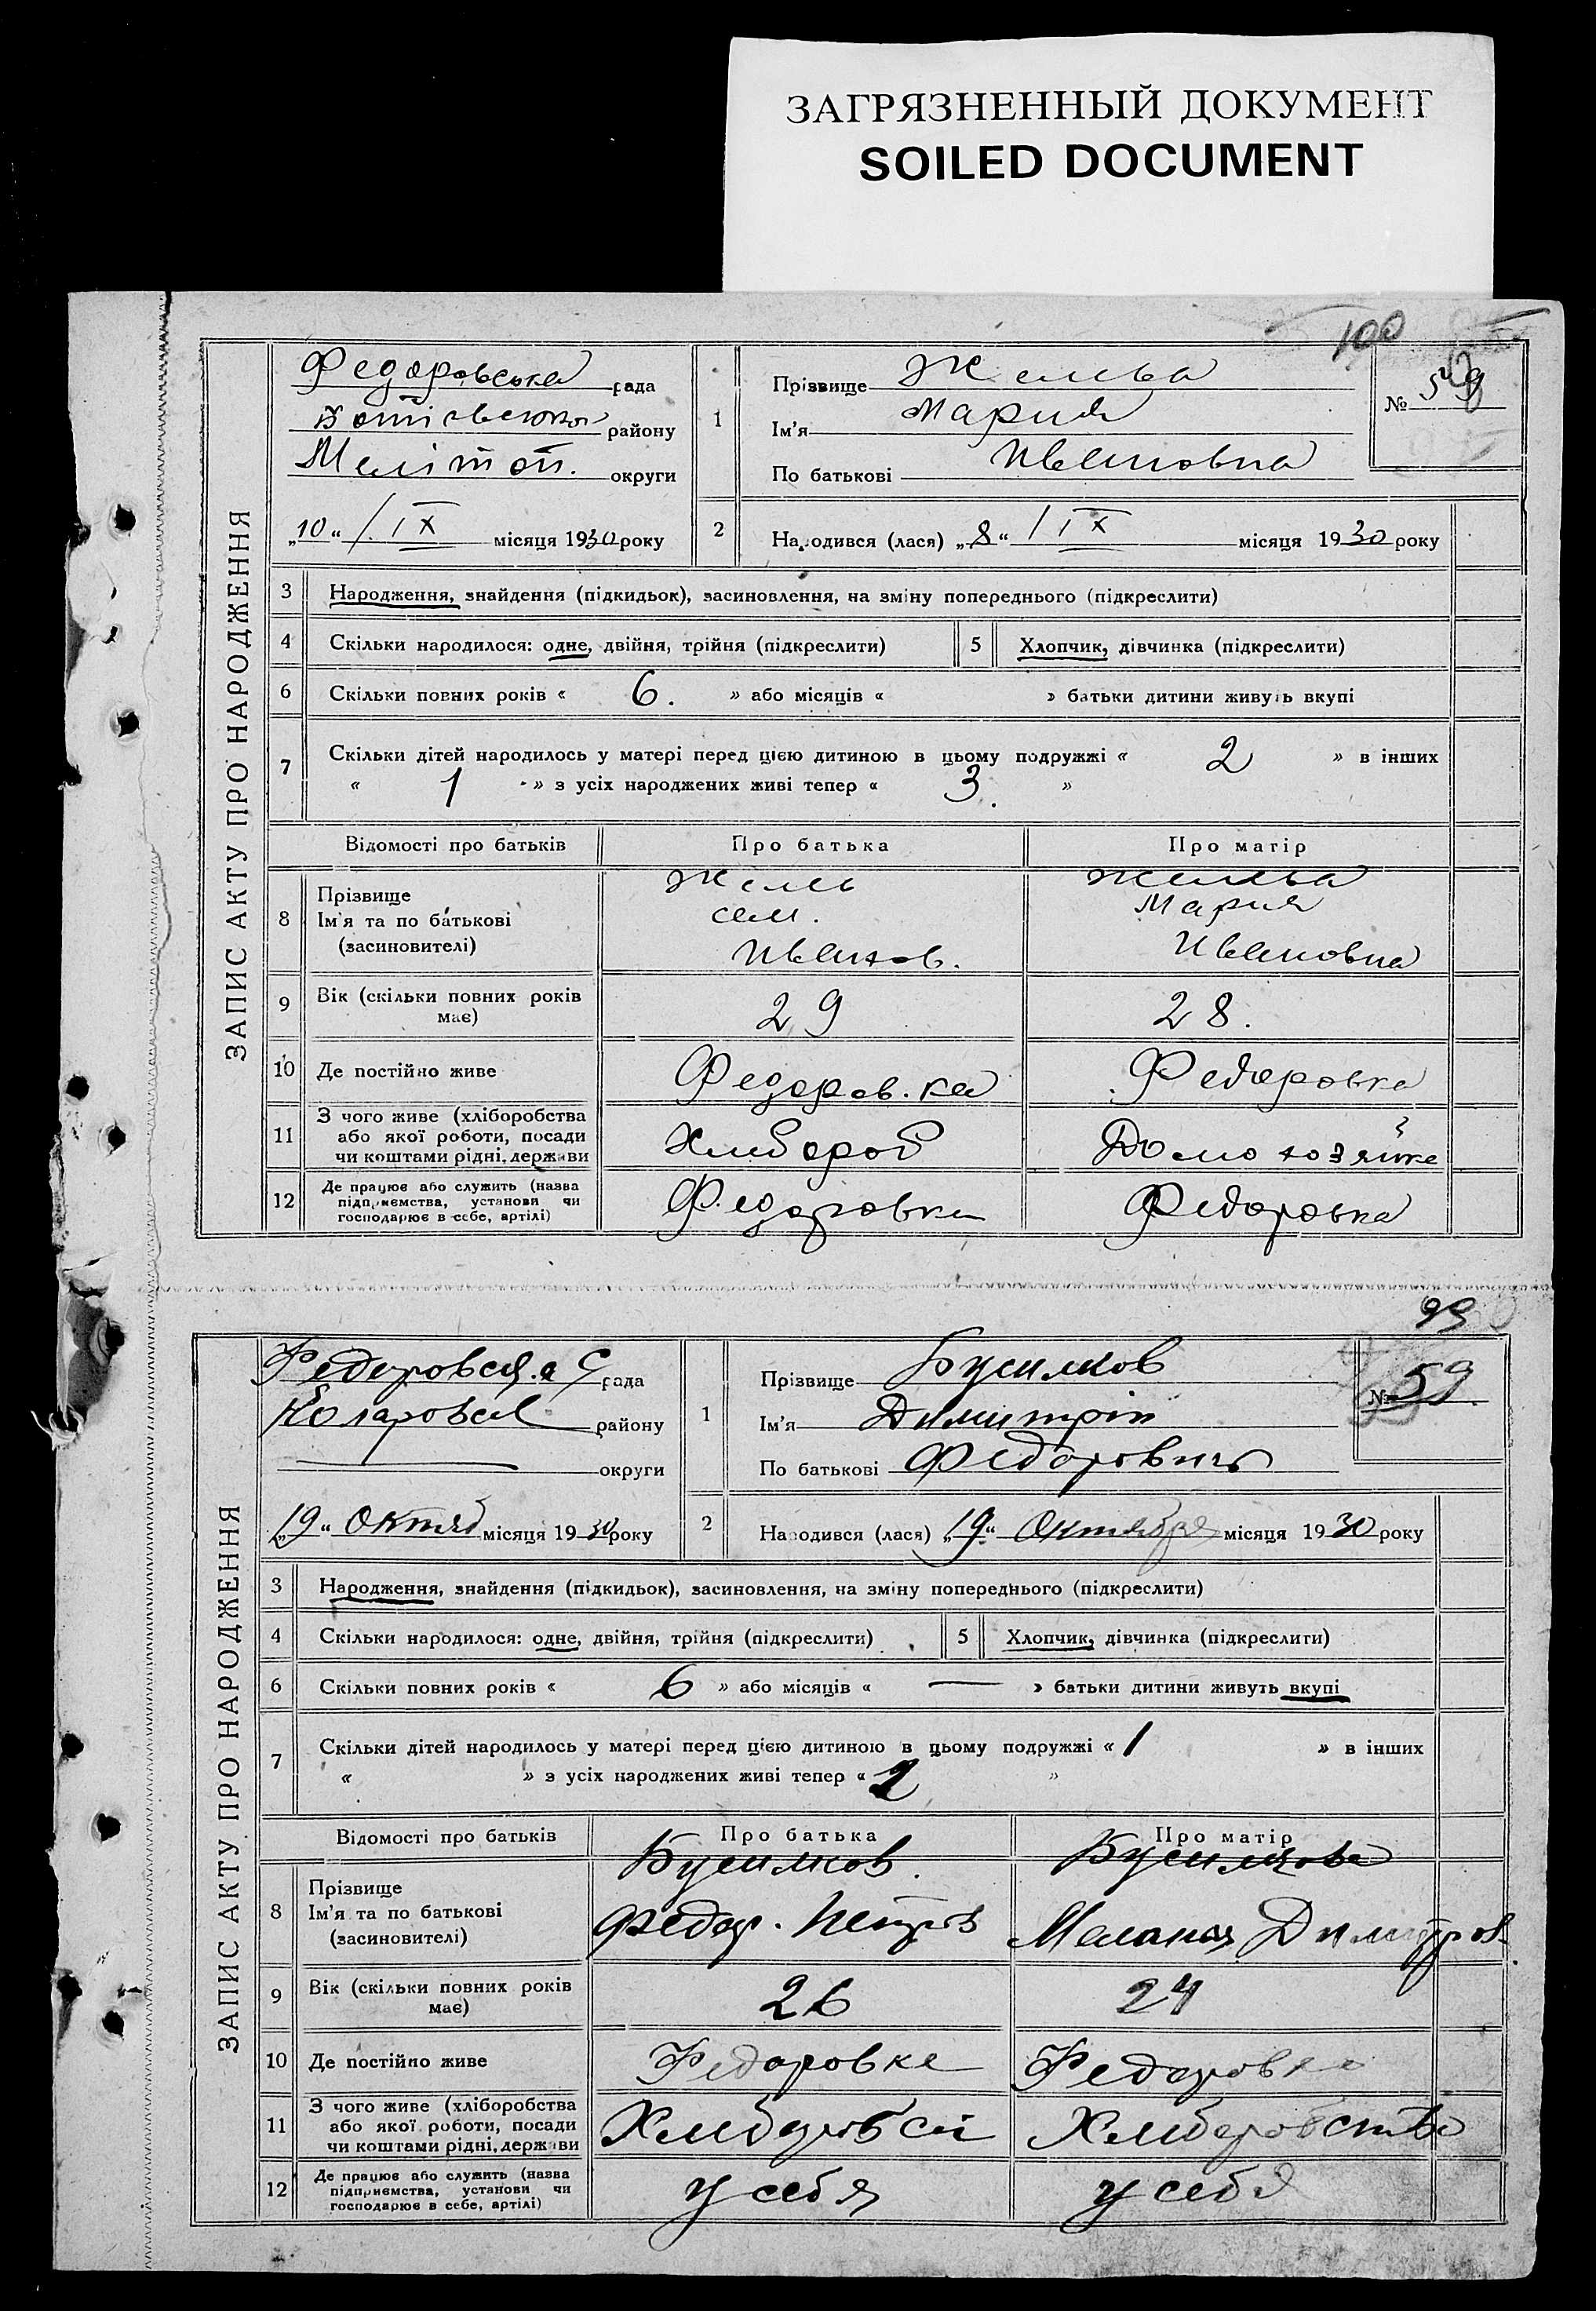 ЗАГРЯЗНЕННЫЙ ДОКУМЕНТ
SOILED DOCUMENT
100
ЗАПИС АКТУ ПРО НАРОДЖЕННЯ
Федоровська рада
району
Меліtoп. округи
„10“ IX місяця 1930 року
1
Прізвище
Ім'я Мария
По батькові Ивановна
№ 59
2
Народився (лася) „8“ IX місяця 1930 року
3 Народження, знайдення (підкидьок), засиновлення, на зміну попереднього (підкреслити)
4 Скільки народилося: одне, двійня, трійня (підкреслити) 5 Хлопчик, дівчинка (підкреслити)
6 Скільки повних років « 6. » або місяців « » батьки дитини живуть вкупі
7 Скільки дітей народилось у матері перед цією дитиною в цьому подружжі « 2 » в інших
« 1 » з усіх народжених живі тепер « 3. »
Відомості про батьків Про батька Про матір
8 Прізвище
Ім'я та по батькові Мария
(засиновителі) Иванов. Ивановна
9 Вік (скільки повних років має) 29 28.
10 Де постійно живе Федоровка Федоровка
11 З чого живе (хліборобства
або якої роботи, посади Хлибороб Домохозяйка
чи коштами рідні, держави
12 Де працює або служить (назва
підприємства, установи чи Федоровка Федоровка
господарює в себе, артілі)
99
ЗАПИС АКТУ ПРО НАРОДЖЕННЯ
Федоровск.а С рада
Коларовск району
округи
„19“ Октяб місяця 1930 року
1
Прізвище Бусилков
Ім'я Димитрій
По батькові Федорович
№ 59
2
Народився (лася) „19“ Октября місяця 1930 року
3 Народження, знайдення (підкидьок), засиновлення, на зміну попереднього (підкреслити)
4 Скільки народилося: одне, двійня, трійня (підкреслити) 5 Хлопчик, дівчинка (підкреслити)
6 Скільки повних років « 6 » або місяців « — » батьки дитини живуть вкупі
7 Скільки дітей народилось у матері перед цією дитиною в цьому подружжі « 1 » в інших
« » з усіх народжених живі тепер « 2 »
Відомості про батьків Про батька Про матір
8 Прізвище Бусилков. Бусилкова
Ім'я та по батькові Федор. Петров Мелания Димитров.
(засиновителі)
9 Вік (скільки повних років має) 26 24
10 Де постійно живе Федоровке Федоровке
11 З чого живе (хліборобства
або якої роботи, посади Хлиборобство
чи коштами рідні, держави
12 Де працює або служить (назва
підприємства, установи чи у себя у себя
господарює в себе, артілі)